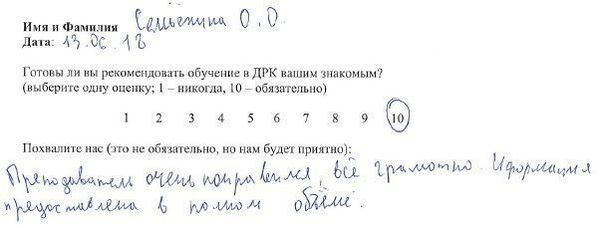 Имя и Фамилия Семыкина О. О.
Дата: 13.06.18
Готовы ли вы рекомендовать обучение в ДРК вашим знакомым?
(выберите одну оценку; 1 – никогда, 10 – обязательно)
1 2 3 4 5 6 7 8 9 10
Похвалите нас (это не обязательно, но нам будет приятно):
Преподаватель очень понравился, всё грамотно. Иформация
предоставлена в полном объёме.